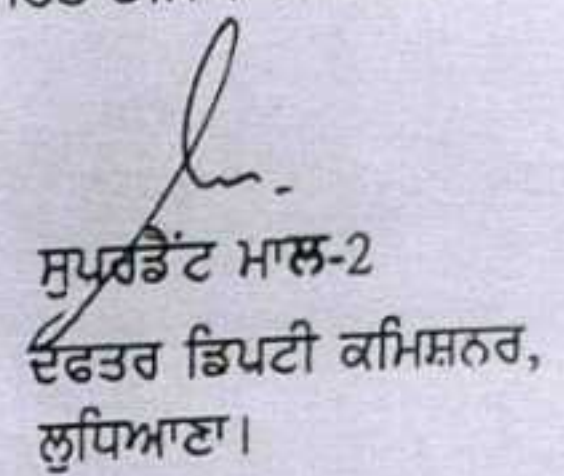 ਸੁਪਰਡੈਂਟ ਮਾਲ-2
ਦਫਤਰ ਡਿਪਟੀ ਕਮਿਸ਼ਨਰ,
ਲੁਧਿਆਣਾ।